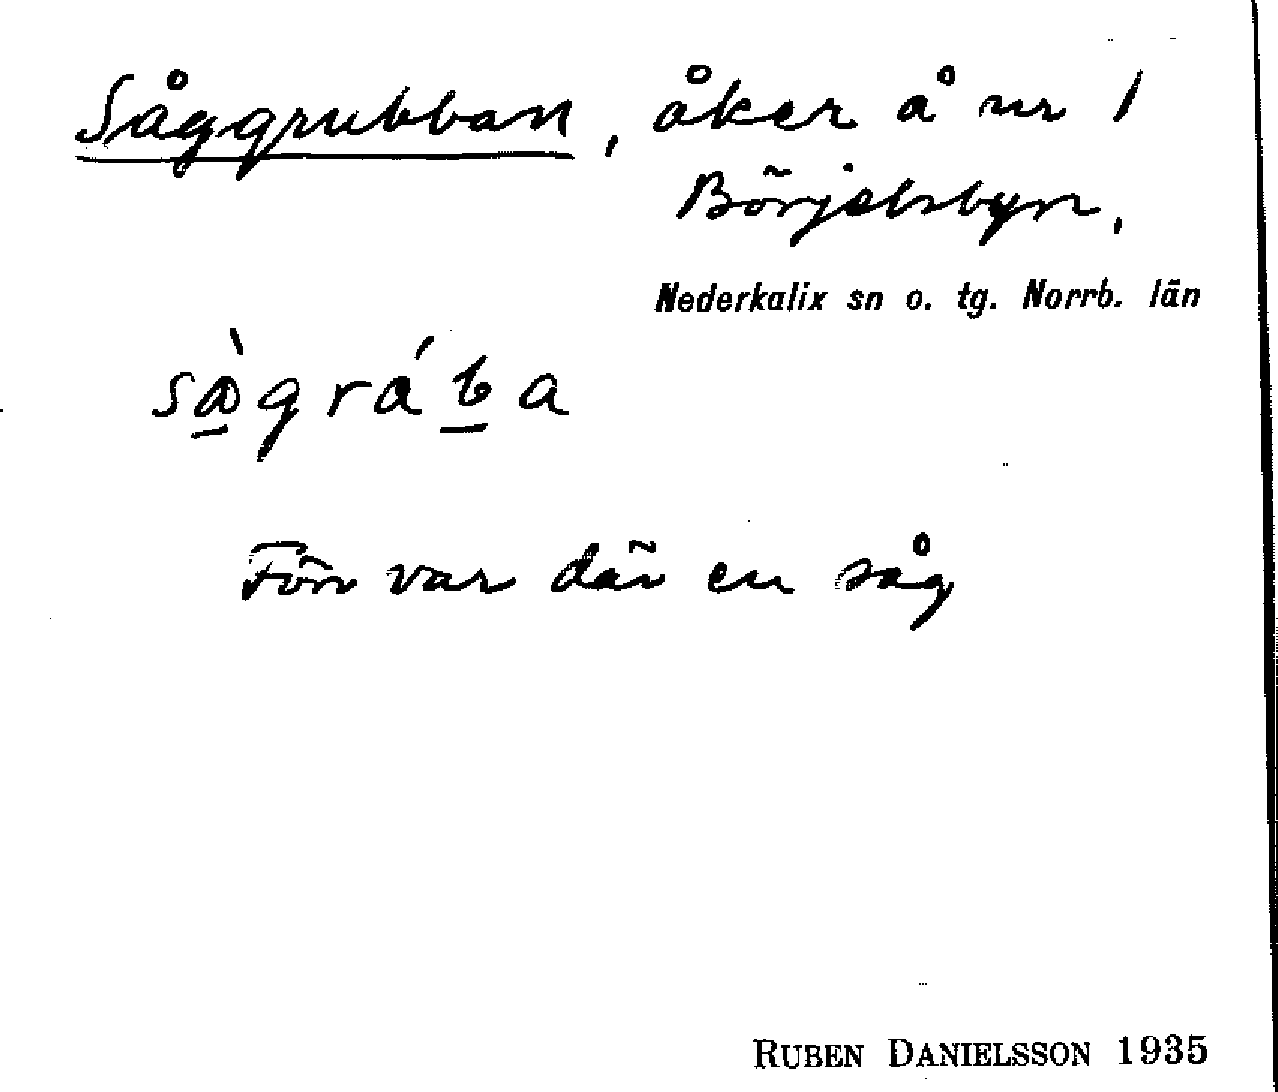 Såggrubban, åker å nr 1
Börjelsbyn,
Nederkalix sn o. tg. Norrb. län
Förr var där en såg
RUBEN DANIELSSON 1935